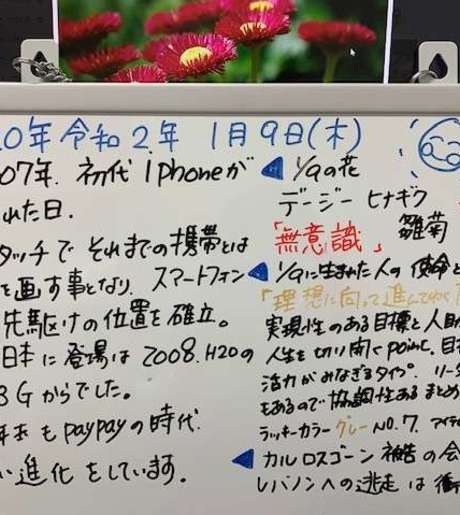 20年 令和2年 1月9日(木)
07年. 初代 iPhoneが
れた日.
タッチで それまでの携帯とは
を画す事となり、スマートフォン
先駆けの位置を確立。
日本に登場は2008.H20の
3Gからでした。
年末もpaypayの時代.
い進化をしています。
◀ 1/9の花
デージー ヒナギク
雛菊
「無意識」
◀ 1/9に生まれた人の使命と
「理想に向って進んでゆく
実現性のある目標と人助
人生を切り開くpoint. 目
活力がみなぎるタイプ. リーダ
もあるので協調性あるまとめ
ラッキーカラー グレー NO.7 アイテ
◀ カルロスゴーン 被告の会
レバノンへの逃走は衝